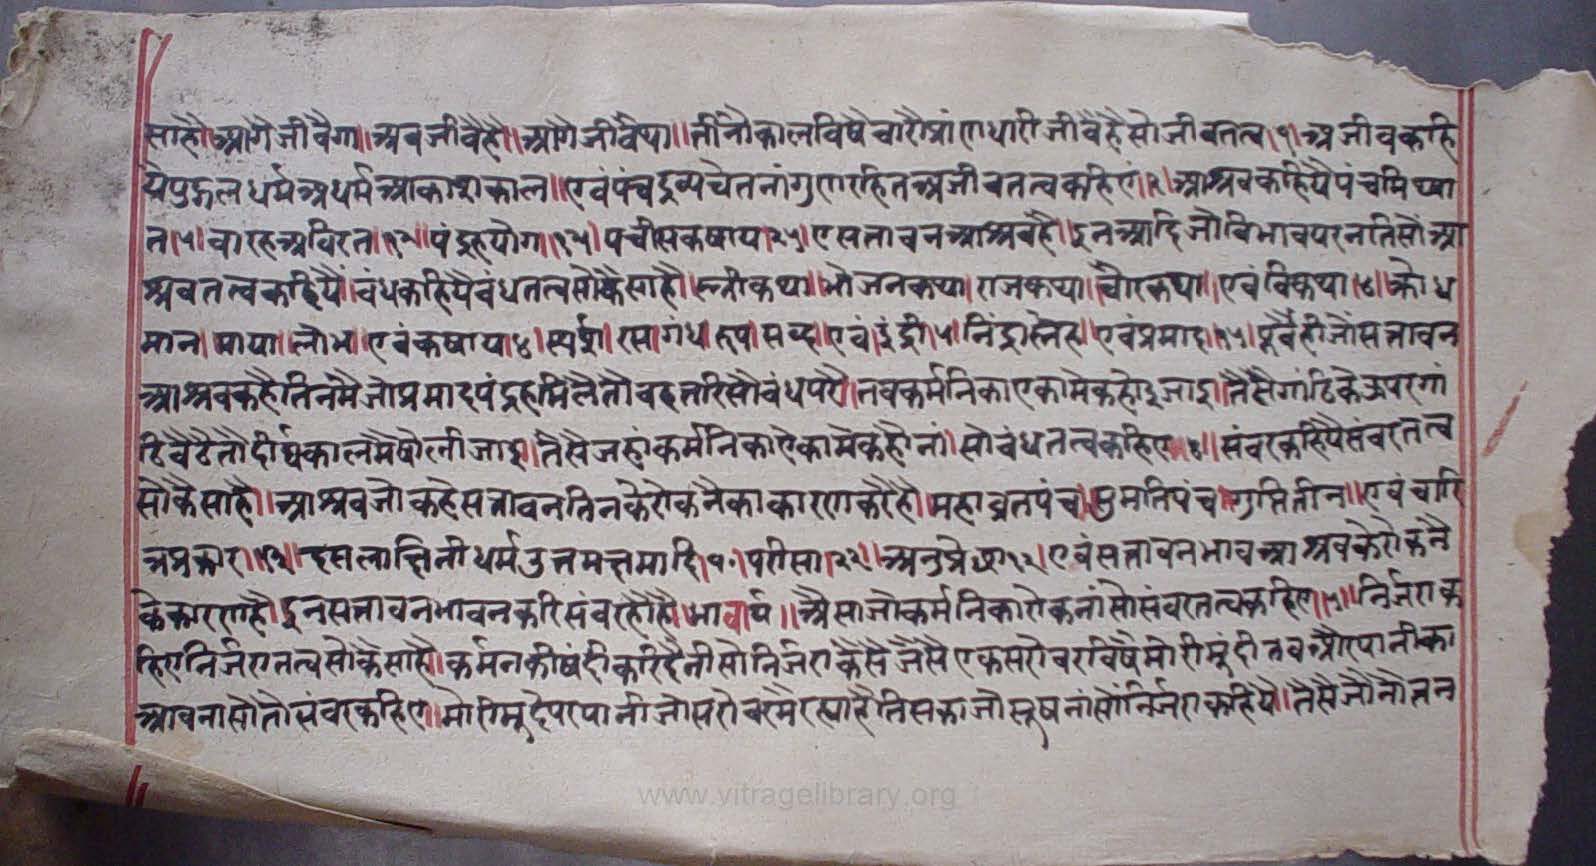 साहौ॥आगै जीवैगा॥अब जीवैहौ॥आगै जीवैथा॥तीनौकालविषैचारौप्रांणधारीजीवैहैसोजीवतत्व।१।अजीवकहि
यैपुद्गलधर्मअधर्मआकाशकाल॥एवंपंचद्रव्यचेतनांगुणरहितअजीवतत्वकहिए।२।आश्रवकहियैपंचमिथ्या
त।५।वारहअविरत।१२॥पंद्रहयोग।१५।पचीसकषाय।२५।एसतावनआश्रवहै।इनआदिजौविभावपरनतिसौंआ
श्रवतत्वकहियै॥बंधकहियैबंधतत्वसोकैसाहौ।स्त्रीकथा।भोजनकथा।राजकथा।चौरकथा॥एवंविकथा।४।क्रोध
मान।माया।लोभ।एवंकषाय।४।स्पर्श।रस।गंध।रूप।सब्द।एवंइंद्री।५।निंद्रास्नेह।एवंप्रमाद।१५।पूर्वैहीजोसतावन
आश्रवकहैतिनमैजोप्रमादपंद्रहमिलैतौवहतरिसौबंधपरै।तवकर्मनिकाएकामेकहोइजाइ।तैसैगांठिकेऊपरगां
ठिवैठेतौदीर्घकालमैषोलीजाइ।तैसैजहांकर्मनिकाऐकामेकहौनां।सोबंधतत्वकहिए।४॥संवरकहियैसंवरतत्व
सोकैसाहै॥आश्रवजोकहेसतावनतिनकेरोकनैकाकारणकरैहै।महाव्रतपंच।सुमतिपंच।गुप्तितीन॥एवंचारि
त्रप्रकार।१३।दसलाक्षिनीधर्मउत्तमक्षमादि।१०।परीसा।२२॥अनुप्रेक्षा।१२।एवंसतावनभावआश्रवकेरोकनै
केकारणहै।इनसतावनभावनकरिसंवरहौहै।भावार्थ॥ऐसाजोकर्मनिकारोकनांसोसंवरतत्वकहिए।५॥निर्जराक
हिएनिर्जरातत्वसोकैसाहै।कर्मनकीषंदीकरिदैनीसोनिर्जराकैसैजैसैएकसरोवरविषैमोरीमूंदीतवऔरपानीका
आवनासोतौसंवरकहिए॥मोरीमूदेपरपानीजोसरोवरमैरह्याहैतिसकाजोसूषनांसोनिर्जराकहियै।तैसैजौनौतन
www.vitragelibrary.org